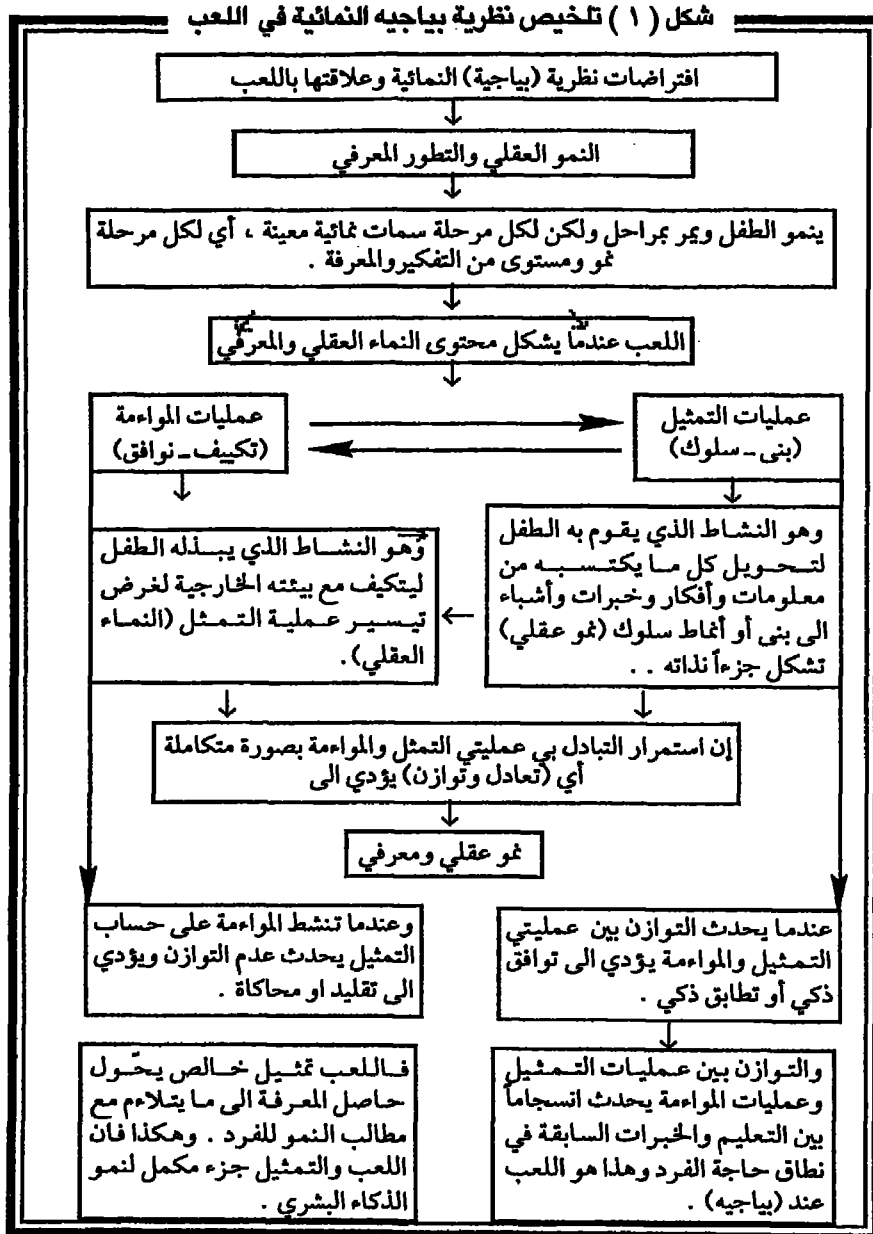 شكل ( ١ ) تلخيص نظرية بياجيه النمائية في اللعب
افتراضات نظرية (بياجية) النمائية وعلاقتها باللعب
النمو العقلي والتطور المعرفي
ينمو الطفل ويمر بمراحل ولكن لكل مرحلة سمات نمائية معينة ، أي لكل مرحلة
نمو ومستوى من التفكير والمعرفة .
اللعب عندما يشكل محتوى النماء العقلي والمعرفي
عمليات التمثيل
(بنى ـ سلوك)
عمليات المواءمة
(تكييف ـ نوافق)
وهو النشاط الذي يقوم به الطفل
لتحويل كل ما يكتسبه من
معلومات وأفكار وخبرات وأشباء
الى بنى أو أنماط سلوك (نمو عقلي)
تشكل جزءاً نذاته . .
وهو النشاط الذي يبذله الطفل
ليتكيف مع بيئته الخارجية لغرض
تيسير عملية التمثل (النماء
العقلي).
إن استمرار التبادل بي عمليتي التمثل والمواءمة بصورة متكاملة
أي (تعادل وتوازن) يؤدي الى
نمو عقلي ومعرفي
عندما يحدث التوازن بين عمليتي
التمثيل والمواءمة يؤدي الى توافق
ذكي أو تطابق ذكي .
وعندما تنشط المواءمة على حساب
التمثيل يحدث عدم التوازن ويؤدي
الى تقليد او محاكاة .
والتوازن بين عمليات التمثيل
وعمليات المواءمة يحدث انسجاماً
بين التعليم والخبرات السابقة في
نطاق حاجة الفرد وهذا هو اللعب
عند (بياجيه) .
فاللعب تمثيل خالص يحّول
حاصل المعرفة الى ما يتلاءم مع
مطالب النمو للفرد . وهكذا فان
اللعب والتمثيل جزء مكمل لنمو
الذكاء البشري .